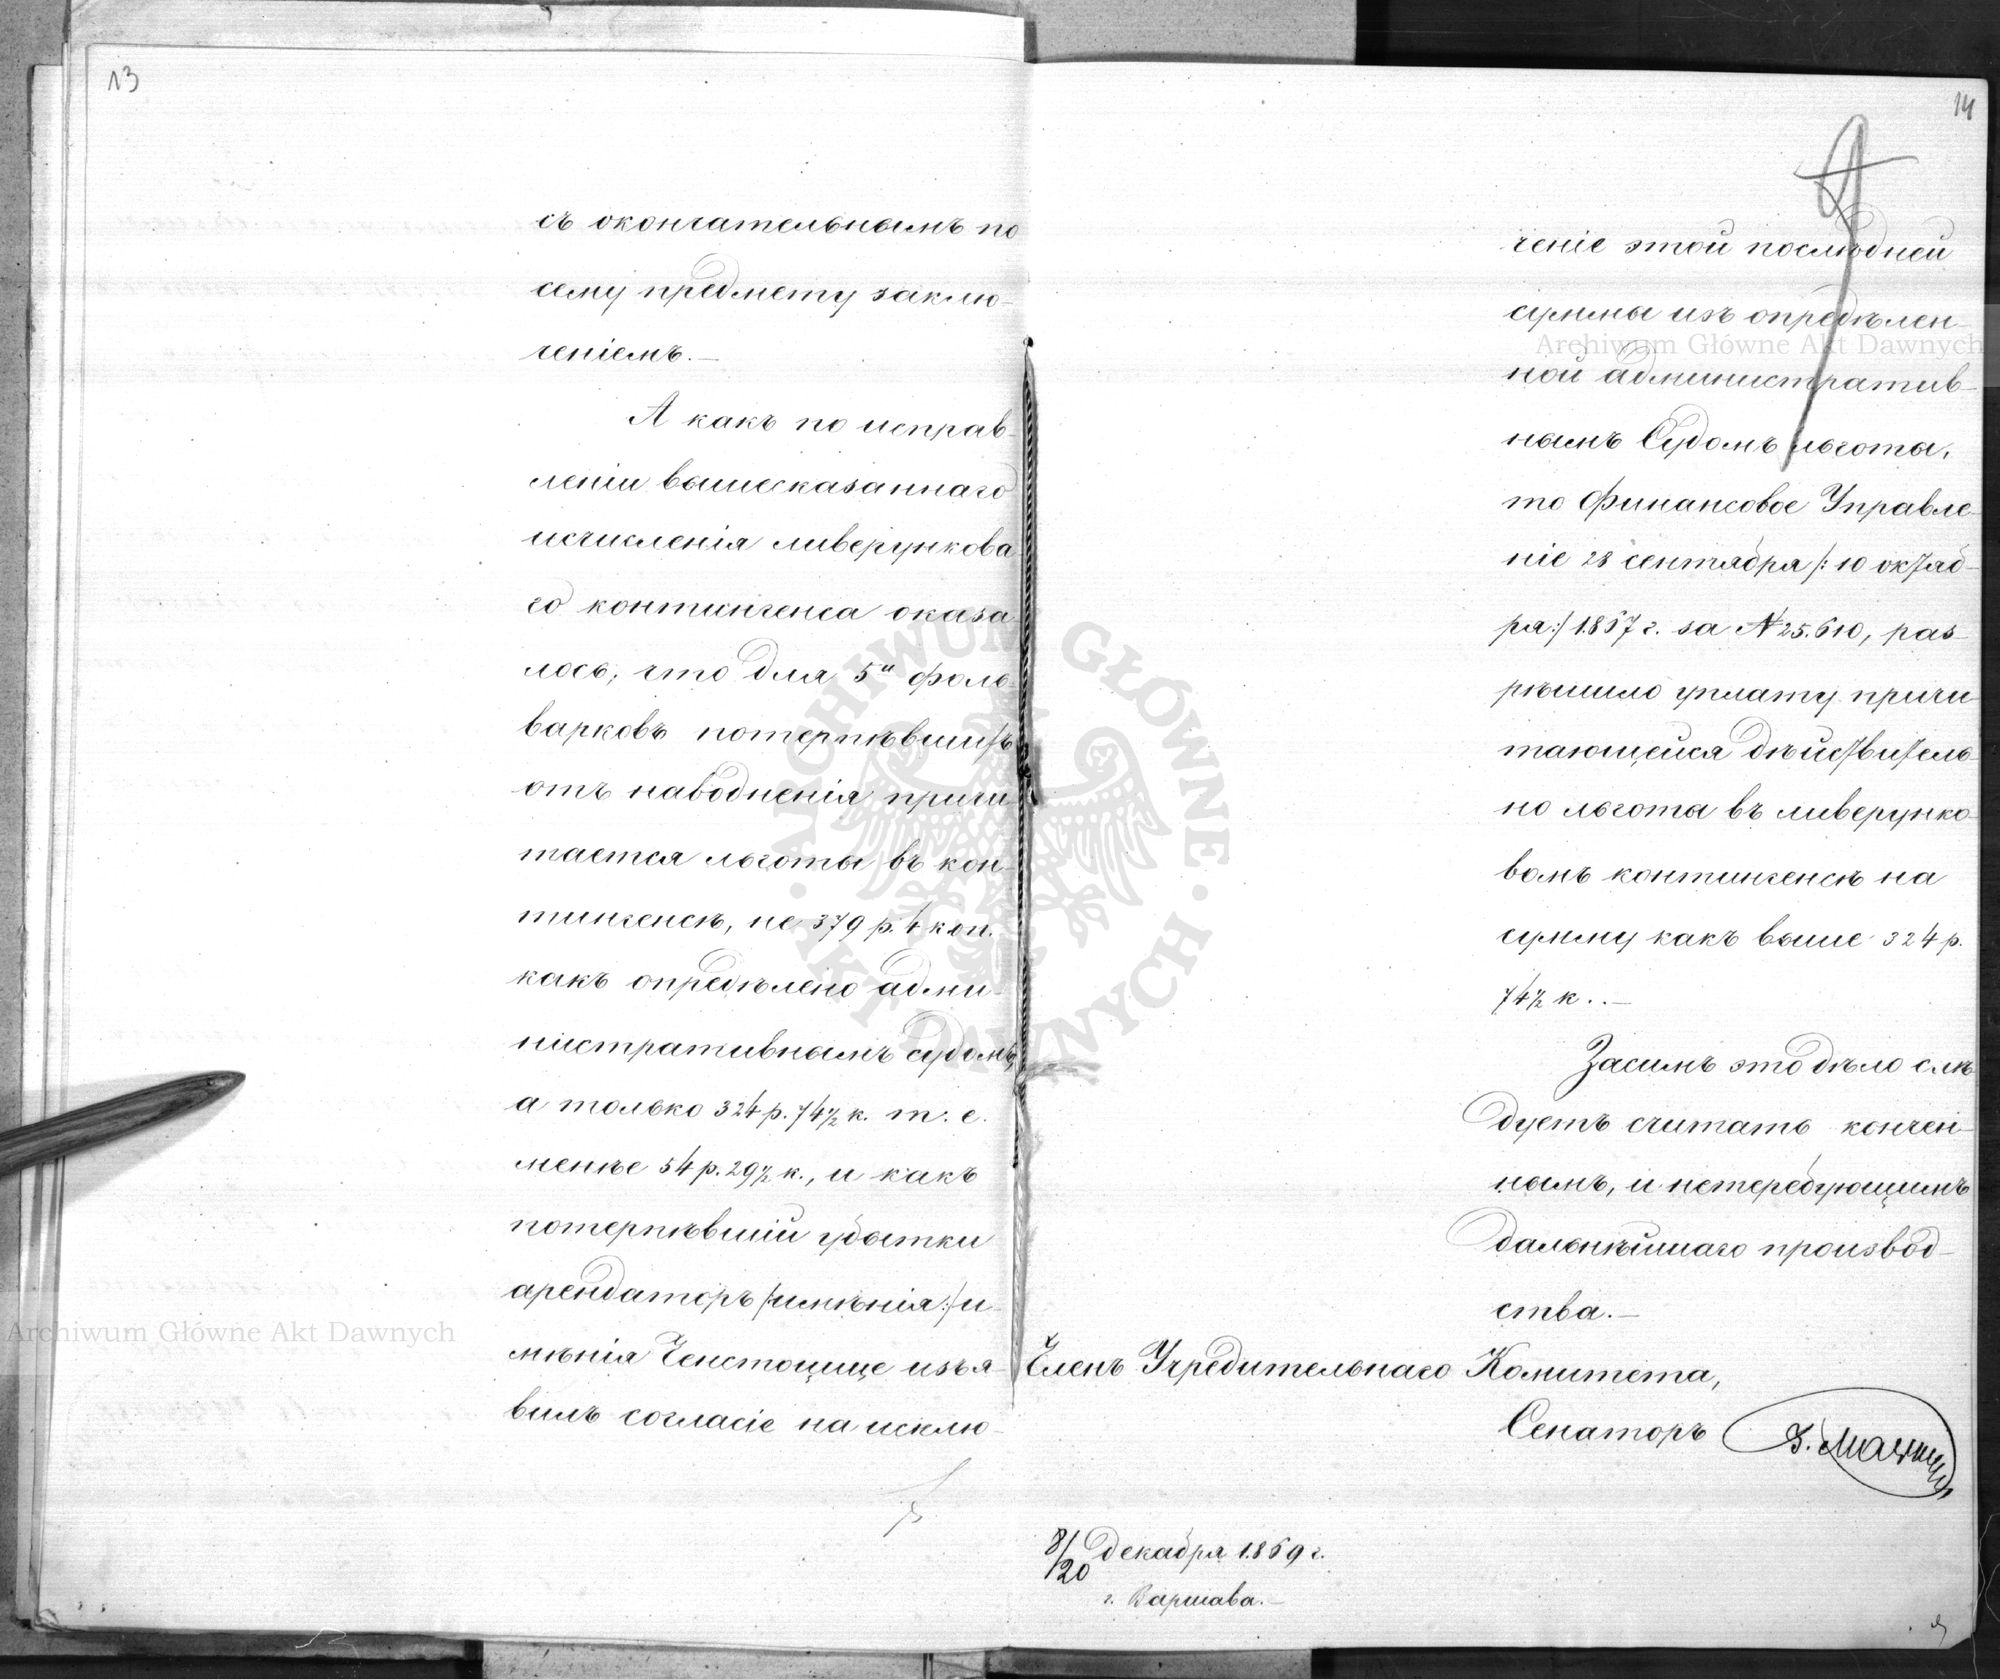 13
съ окончательнымъ по
сему предмету заклю-
ченіемъ.—
А какъ по исправ-
леніи вышесказаннаго
исчисленія ливерункова
го контингенса оказа
лось, что для 5и фоль-
варковъ потерпѣвшихъ
отъ наводненія причи
тается льготы въ кон-
тингенсѣ, не 379 р. 4 коп.
какъ опредѣлено адми-
нистративнымъ судомъ,
а только 324 р. 74½ к. т. е.
менѣе 54 р. 29½ к., и какъ
потерпѣвшій убытки
арендаторъ /:имѣнія:/ и-
мѣнія Ченстощице изъя-
вилъ согласіе на исклю-
14
ченіе этой послѣдней
суммы изъ опредѣлен-
ной административ-
нымъ Судомъ льготы,
то Финансовое Управле-
ніе 28 сентября /:10 октяб-
ря:/ 1867 г. за № 25.610, раз-
рѣшило уплату причи
тающейся дѣйствитель-
но льготы въ ливерунко-
вомъ контингенсѣ на
сумму какъ выше 324 р.
74½ к..—
Засимъ это дѣло слѣ
дуетъ считать кончен-
нымъ, и нетеребующимъ
дальнѣйшаго производ-
ства.—
Членъ Учредительнаго Комитета,
Сенаторъ
8/20 Декабря 1869 г.
г. Варшава.—
Archiwum Główne Akt Dawnych
Archiwum Główne Akt Dawnych
ARCHIWUM GŁÓWNE AKT DAWNYCH